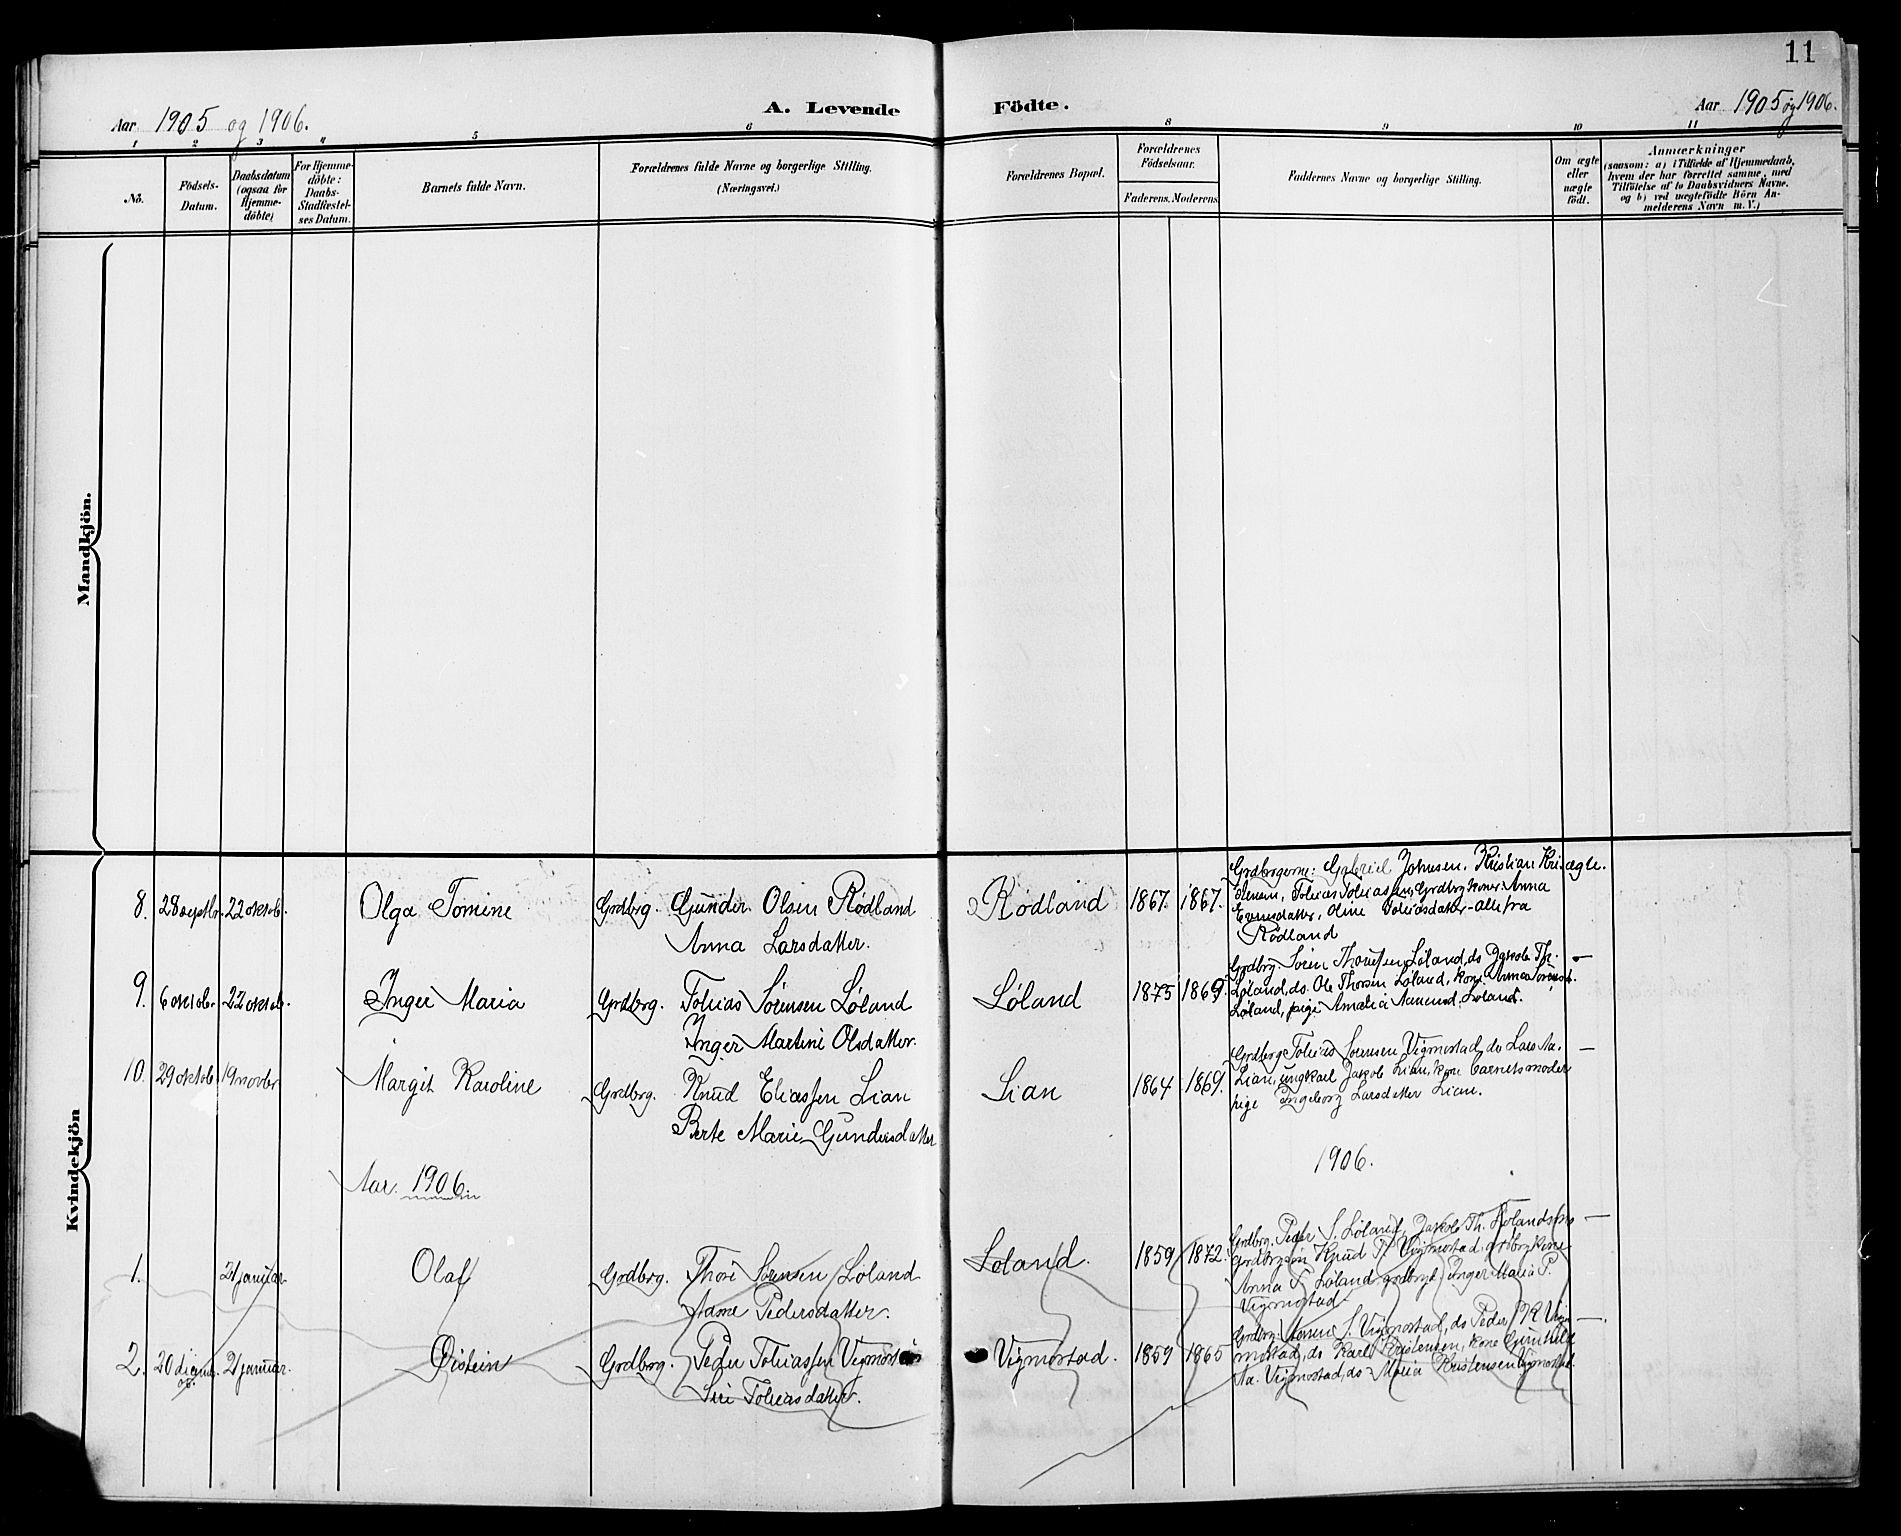 11
Aar 1905 og 1906. A. Levende Födte. Aar 1905 og 1906.
1 2 3 4 5 6 8 9 10 11
No.
Födsels-
Datum.
Daabsdatum
(ogsaa for
Hjemme-
döbte)
For Hjemme-
döbte:
Daabs-
Stadfæstel-
ses Datum.
Barnets fulde Navn.
Forældrenes fulde Navne og borgerlige Stilling.
(Næringsvei.)
Forældrenes Bopæl.
Forældrenes
Födselsaar.
Faderens. Moderens.
Faddernes Navne og borgerlige Stilling.
Om ægte
eller
uægte
födt.
Anmærkninger
(saasom: a) i Tilfælde af Hjemmedaab,
hvem der har forrettet samme, med
Tilföielse af to Daabsvidners Navne.
og b) ved uægtefödte Börn An-
melderens Navn m. V.)
Mandkjön.
Kvindekjön
8. 28 septbr. 22 oktob. Olga Tomine Grdbrg. Gunder Olsen Rødland
Anna Larsdatter.
Rødland 1867. 1867.
Grdbrgerne: Gabriel Johnsen, Kristian Kri- ægte.
stensen, Tobias Tobiassen, Grdbrgkoner Anna
Evensdatter, Oline Tobiasdatter - alle fra
Rødland
9. 6 oktob. 22 oktob. Inger Maria Grdbrg. Tobias Sørensen Løland
Inger Martine Olsdatter.
Løland 1875 1869.
Grdbrg. Søren Thorsen Løland, ds Jakob Th. —
Løland, ds. Ole Thorsen Løland, kone Anna Sørensd.
Løland, pige Amalia Aanensd. Løland.
10. 29 oktob. 19 novbr Margit Karoline Grdbrg. Knud Eliassen Lian
Berte Marie Gundersdatter
Lian 1864 1869.
Grdbrg Tobias Sørensen Vigmostad, ds Lars Aa. —
Lian, ungkarl Jakob Lian, kone barnets moder
pige Ingeborg Larsdatter Lian.
Aar 1906. 1906.
1. 21 januar Olaf Grdbrg. Thore Sørensen Løland
Aasne Pedersdatter.
Løland. 1859 1872.
Grdbrg. Peder S. Løland, Jakob Th. Løland —
Grdbrgsøn Knud T. Vigmostad, grdbrgkone
Anna T. Løland, grdbrgd. Inger Maria P.
Vigmostad.
2. 20 21 januar. Øistein Grdbrg. Peder Tobiassen Vigmostad
Siri Tobiasdatter.
Vigmostad. 1859 1865
Grdbrg. Søren S. Vigmostad, ds Peder K Vig- —
mostad, ds Karl Kristensen, kone Gunhild
Aa. Vigmostad, ds Maria Kristensen Vigmostad.